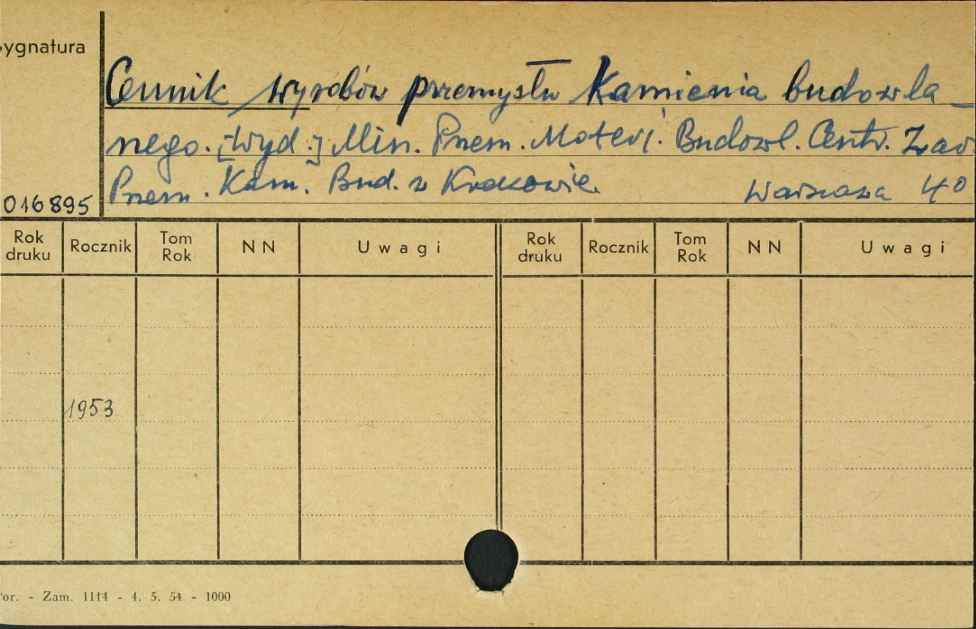 Sygnatura
Cennik wyrobów przemysłu Kamienia budowla-
nego. [Wyd.:] Min. Przem. Mater. Budowl. Centr. Zarz
Przem. Kam. Bud. w Krakowie.
Warszawa 4°
016895
Rok druku Rocznik Tom Rok NN Uwagi Rok druku Rocznik Tom Rok NN Uwagi
1953
or. - Zam. 1114 - 4. 5. 54 - 1000